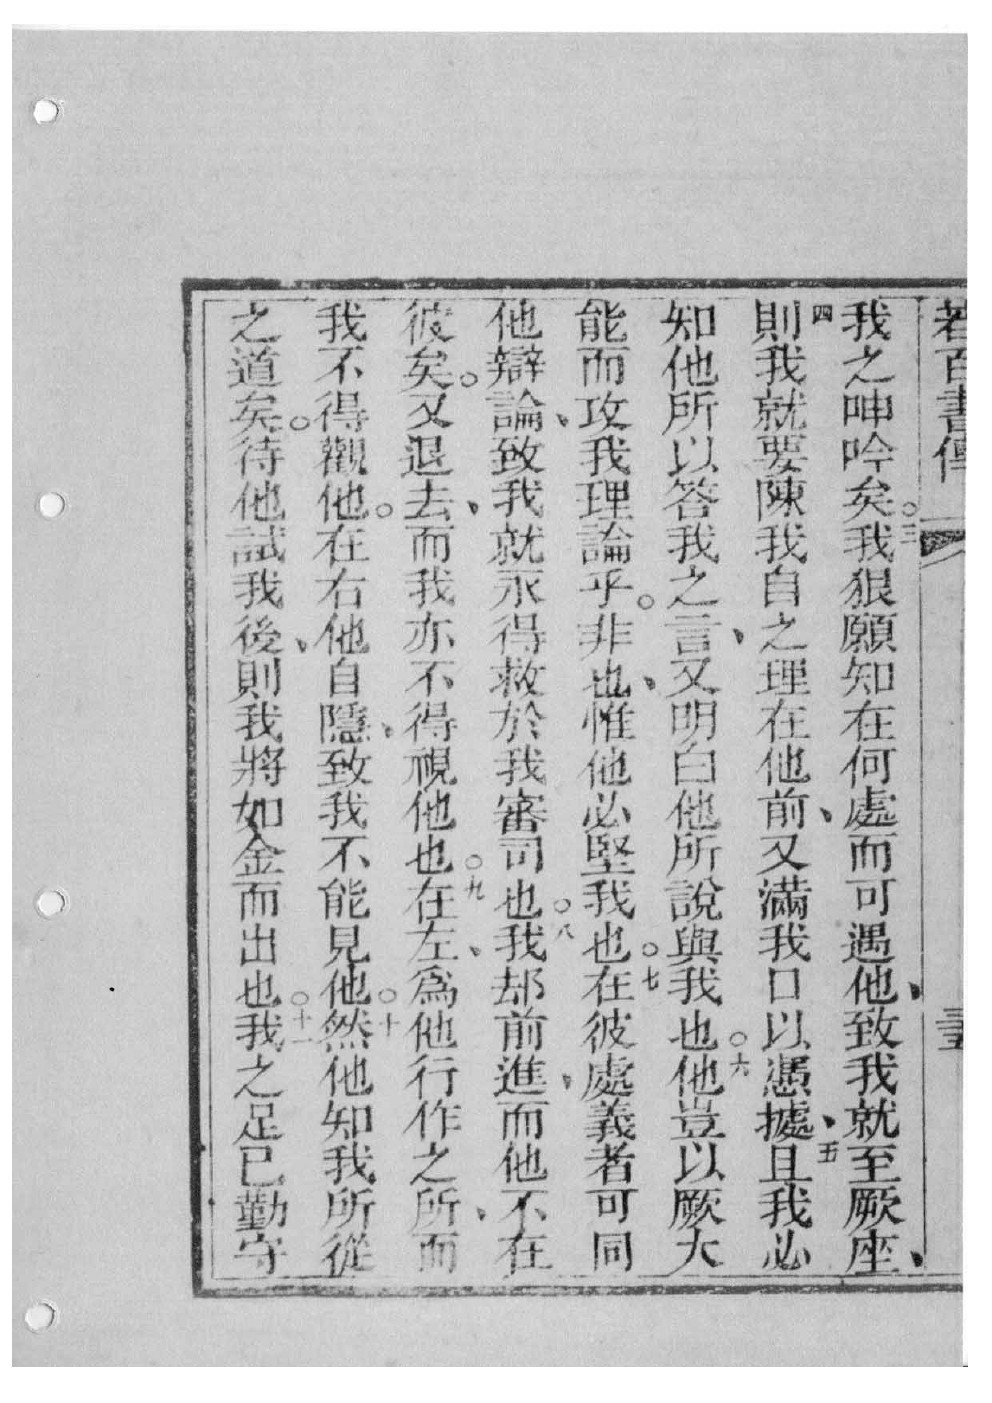 若百書傳 三五
我之呻吟矣。三我狠願知在何處而可遇他、致我就至厥座、
四則我就要陳我自之理在他前、又滿我口以憑據、五且我必
知他所以答我之言、又明白他所說與我也。六他豈以厥大
能而攻我理論乎。非也、惟他必堅我也。七在彼處義者可同
他辯論、致我就永得救於我審司也。八我却前進、而他不在
彼矣。又退去、而我亦不得視他也。九在左、為他行作之所、而
我不得觀他。在右他自隱、致我不能見他。十然他知我所從
之道矣。待他試我後、則我將如金而出也。十一我之足已勤守